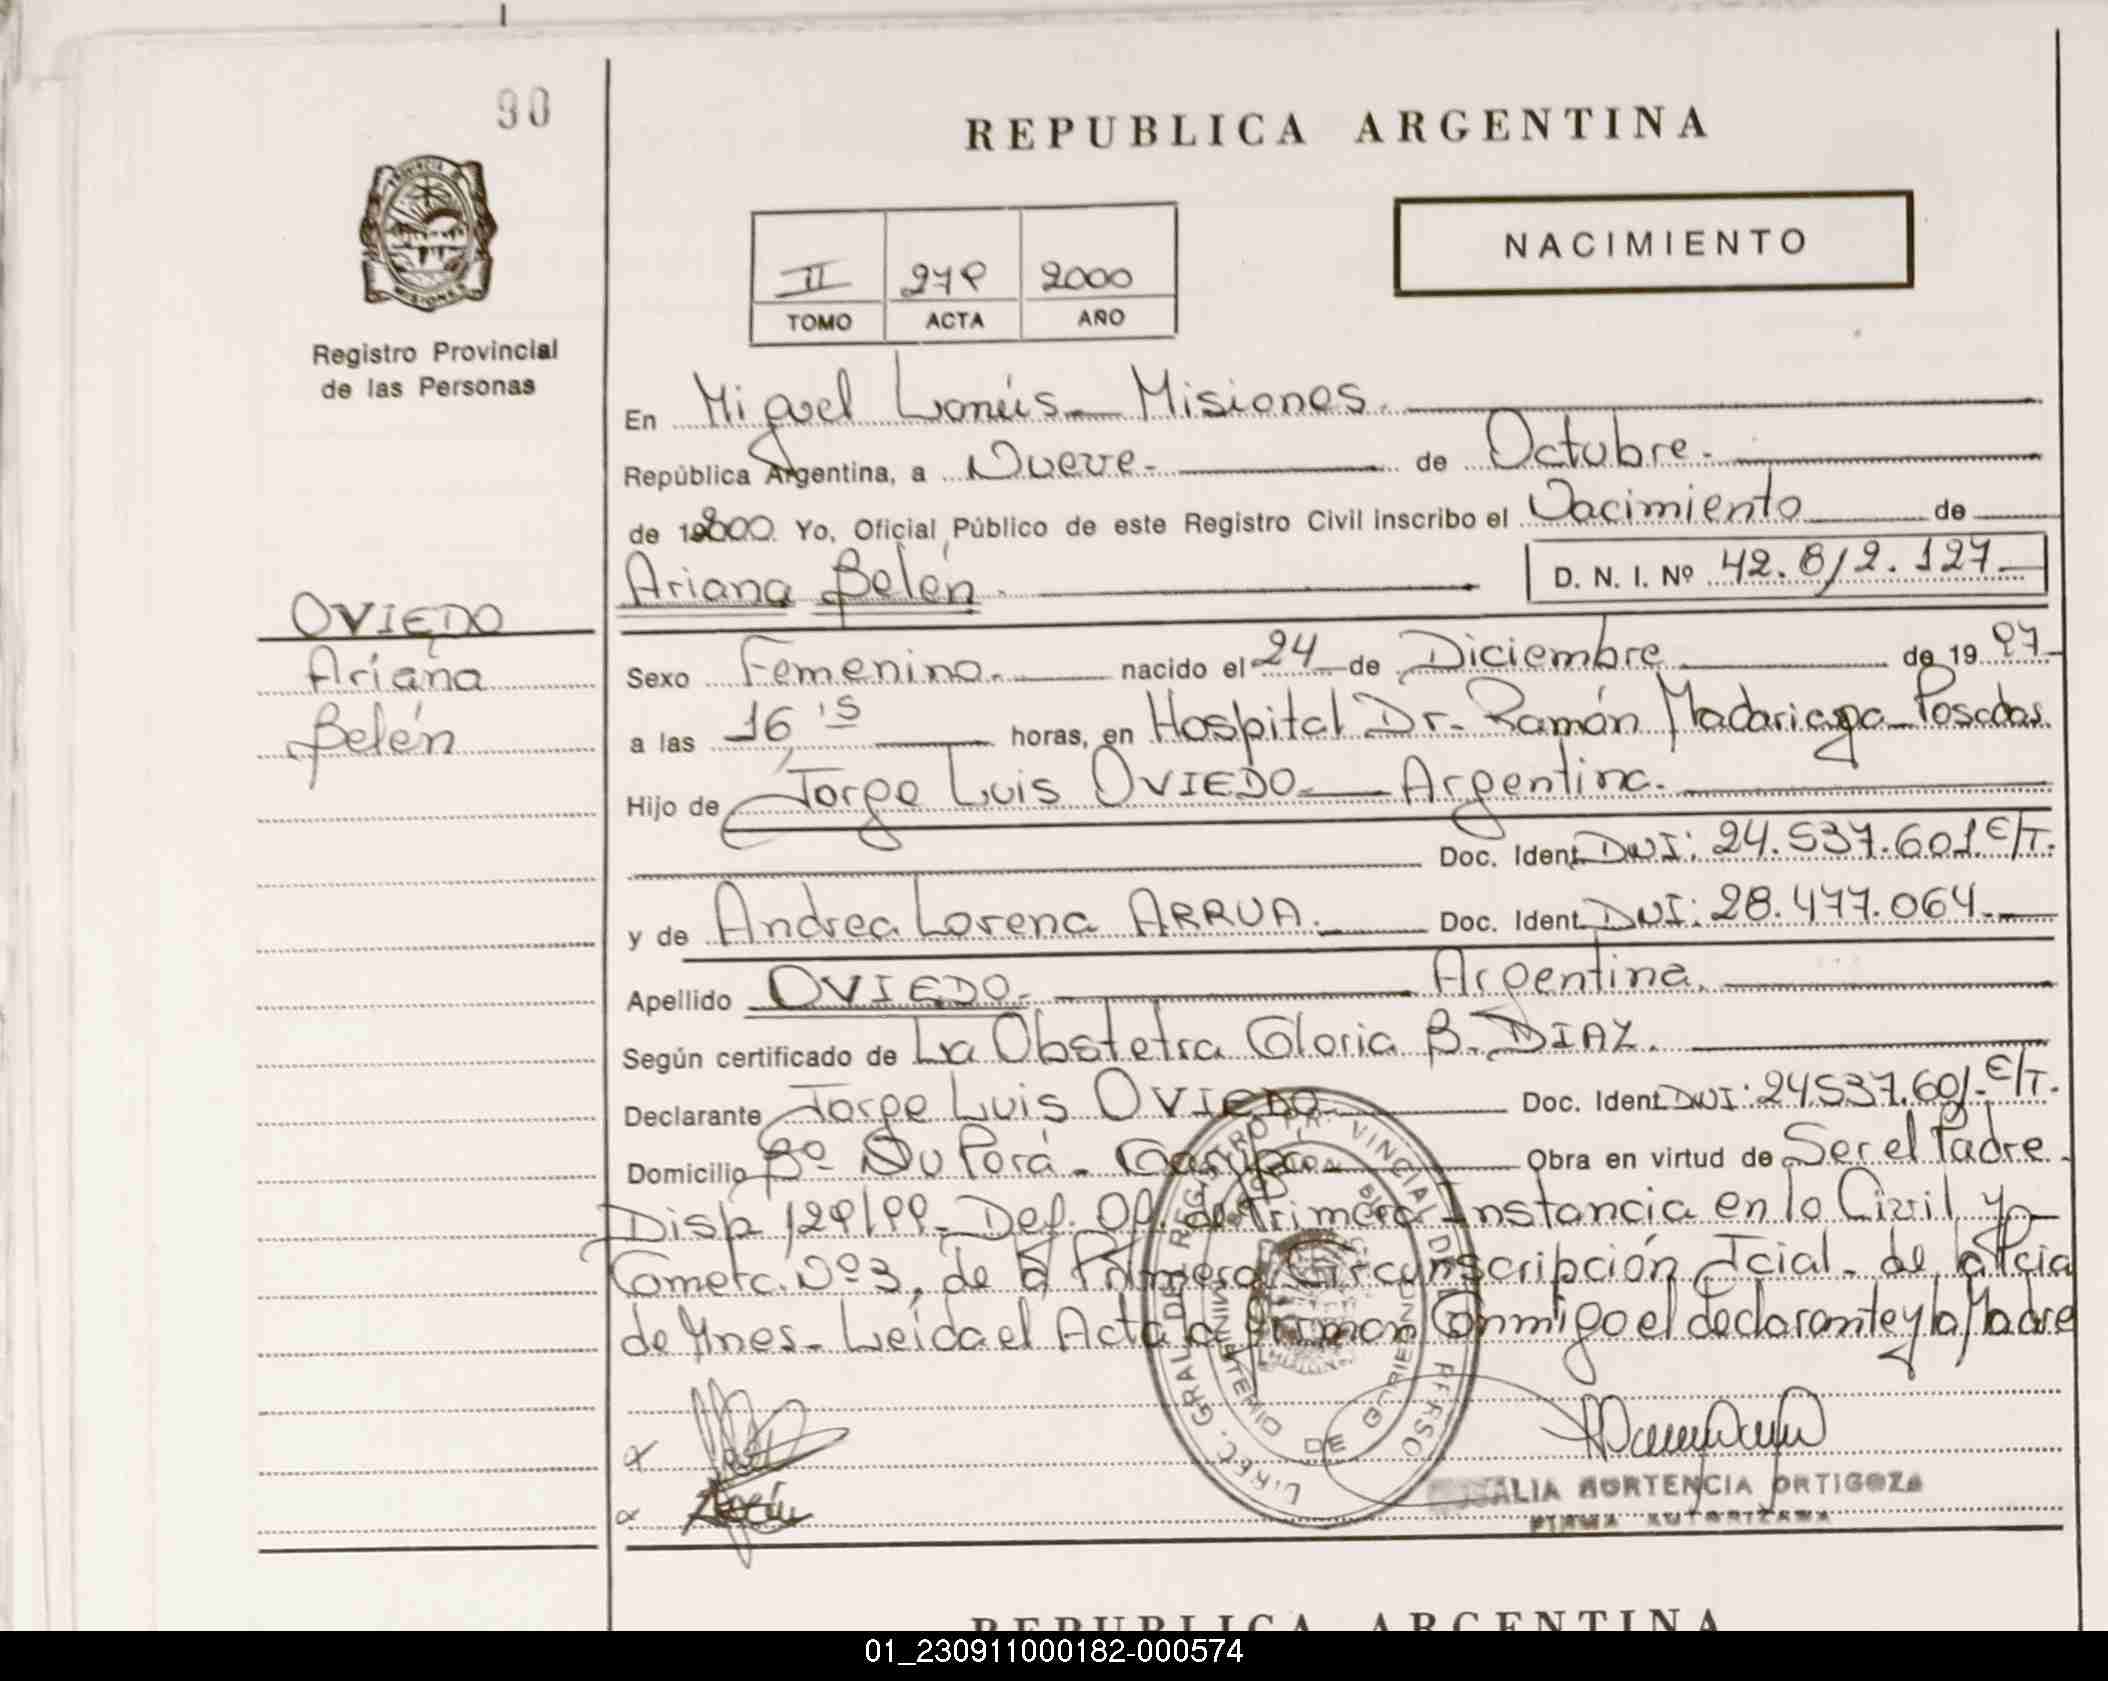 90
REPUBLICA ARGENTINA
PROVINCIA
MISIONES
NACIMIENTO
II 279 2000
TOMO ACTA AÑO
Registro Provincial
de las Personas
En Miguel Lanús - Misiones.
República Argentina, a Nueve - de Octubre.
de 2000. Yo, Oficial Público de este Registro Civil inscribo el Nacimiento de
Ariana Belén. D. N. I. Nº 42.812.127
OVIEDO
Ariana
Belén
Sexo Femenino. nacido el 24 de Diciembre de 1997
a las 16,15 horas, en Hospital Dr. Ramón Madariaga - Posadas.
Hijo de Jorge Luis OVIEDO - Argentina.
Doc. Ident. DNI: 24.537.601 E/T.
y de Andrea Lorena ARRUA. Doc. Ident. DNI: 28.477.064-
Apellido OVIEDO. Argentina.
Según certificado de La Obstetra Gloria B. DIAZ.
Declarante Jorge Luis OVIEDO Doc. Ident. DNI: 24.537.601- E/T.
Domicilio Bº Ñu Porá - Garupá Obra en virtud de Ser el Padre.
Disp 129/99 - Def. Of. de Primera Instancia en lo Civil y
Comerc. Nº 3, de la Primera Circunscripción Jcial. de la Pcia
de Mnes - Leída el Acta firman Conmigo el declarante y la Madre
DIREC. GRAL. DE REGISTRO PROVINCIAL DE
MINISTERIO DE GOBIERNO
HORTENCIA ORTIGOZA
FIRMA AUTORIZADA
REPUBLICA ARGENTINA
01_230911000182-000574